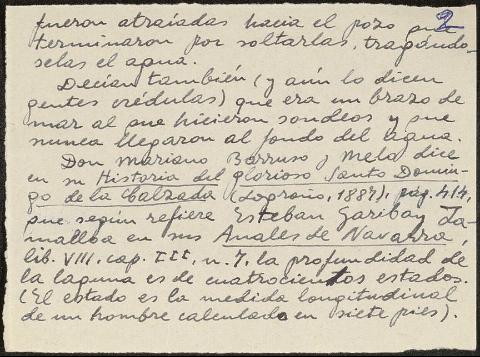 fueron atraídas hacia el pozo que 2
terminaron por soltarlas, tragándo-
selas el agua.
Decían también (y aún lo dicen
gentes crédulas) que era un brazo de
mar al que hicieron sondeos y que
nunca llegaron al fondo del agua.
Don Mariano Barruso y Melo dice
en su Historia del glorioso Santo Domin-
go de la Calzada (Logroño, 1887), pág. 414,
que según refiere Esteban Garibay Za-
malloa en sus Anales de Navarra,
lib. VIII, cap. III, n. 7, la profundidad de
la laguna es de cuatrocientos estados.
(El estado es la medida longitudinal
de un hombre calculado en siete pies).